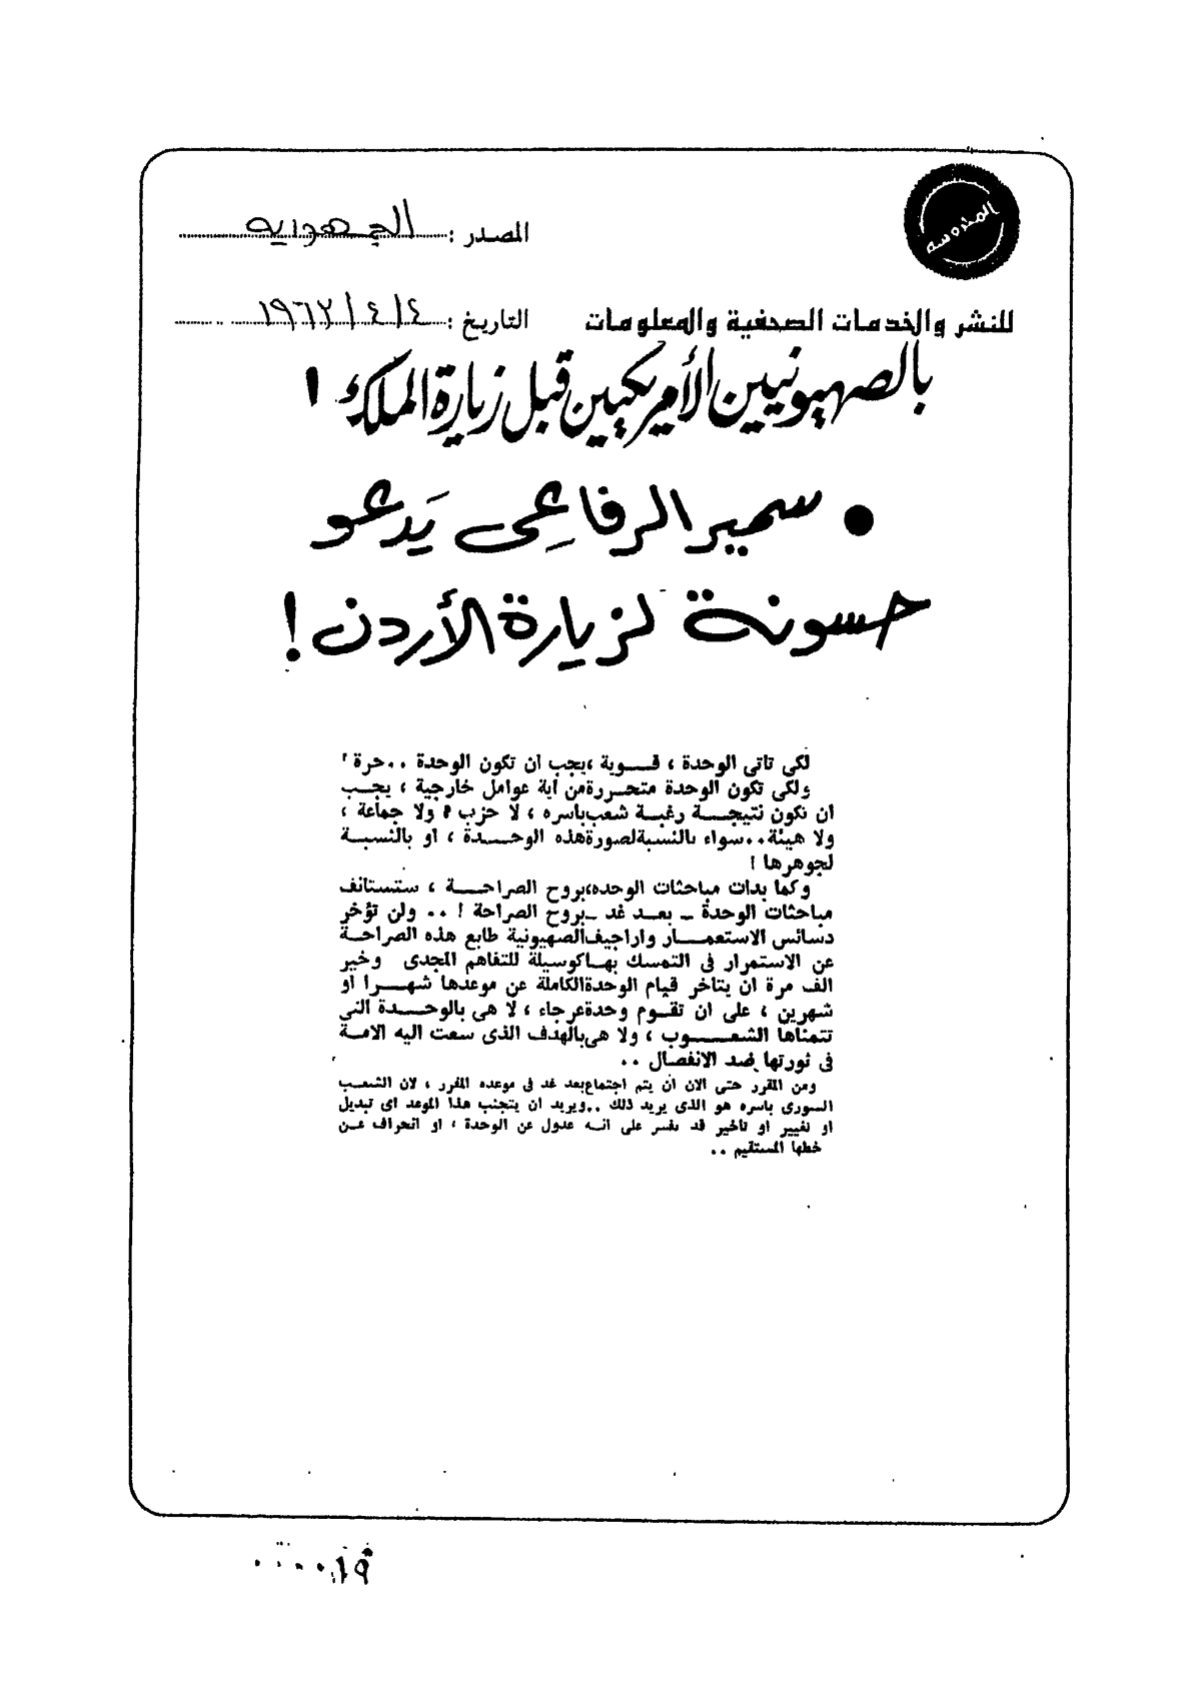 المحروسة
المصدر : الجمهورية
للنشر والخدمات الصحفية والمعلومات
التاريخ : ٤ / ٤ / ١٩٦٣
بالصهيونيين الأمريكيين قبل زيارة الملك !
• سمير الرفاعى يَدعو
حسونة لزيارة الأردن !
لكى تاتى الوحدة ، قوية ، يجب ان تكون الوحدة .. حرة !
ولكى تكون الوحدة متحررة من اية عوامل خارجية ، يجب
ان تكون نتيجة رغبة شعب باسره ، لا حزب ، ولا جماعة ،
ولا هيئة .. سواء بالنسبة لصورة هذه الوحدة ، او بالنسبة
لجوهرها !
وكما بدات مباحثات الوحده ، بروح الصراحة ، ستستانف
مباحثات الوحدة ـ بعد غد ـ بروح الصراحة ! .. ولن تؤخر
دسائس الاستعمار واراجيف الصهيونية طابع هذه الصراحة
عن الاستمرار فى التمسك بها كوسيلة للتفاهم المجدى وخير
الف مرة ان يتاخر قيام الوحدة الكاملة عن موعدها شهرا او
شهرين ، على ان تقوم وحدة عرجاء ، لا هى بالوحدة التى
تتمناها الشعوب ، ولا هى بالهدف الذى سعت اليه الامة
فى ثورتها ضد الانفصال ..
ومن المقرر حتى الان ان يتم اجتماع بعد غد فى موعده المقرر ، لان الشعب
السورى باسره هو الذى يريد ذلك .. ويريد ان يتجنب هذا الموعد اى تبديل
او تغيير او تاخير قد يفسر على انه عدول عن الوحدة ، او انحراف عن
خطها المستقيم ..